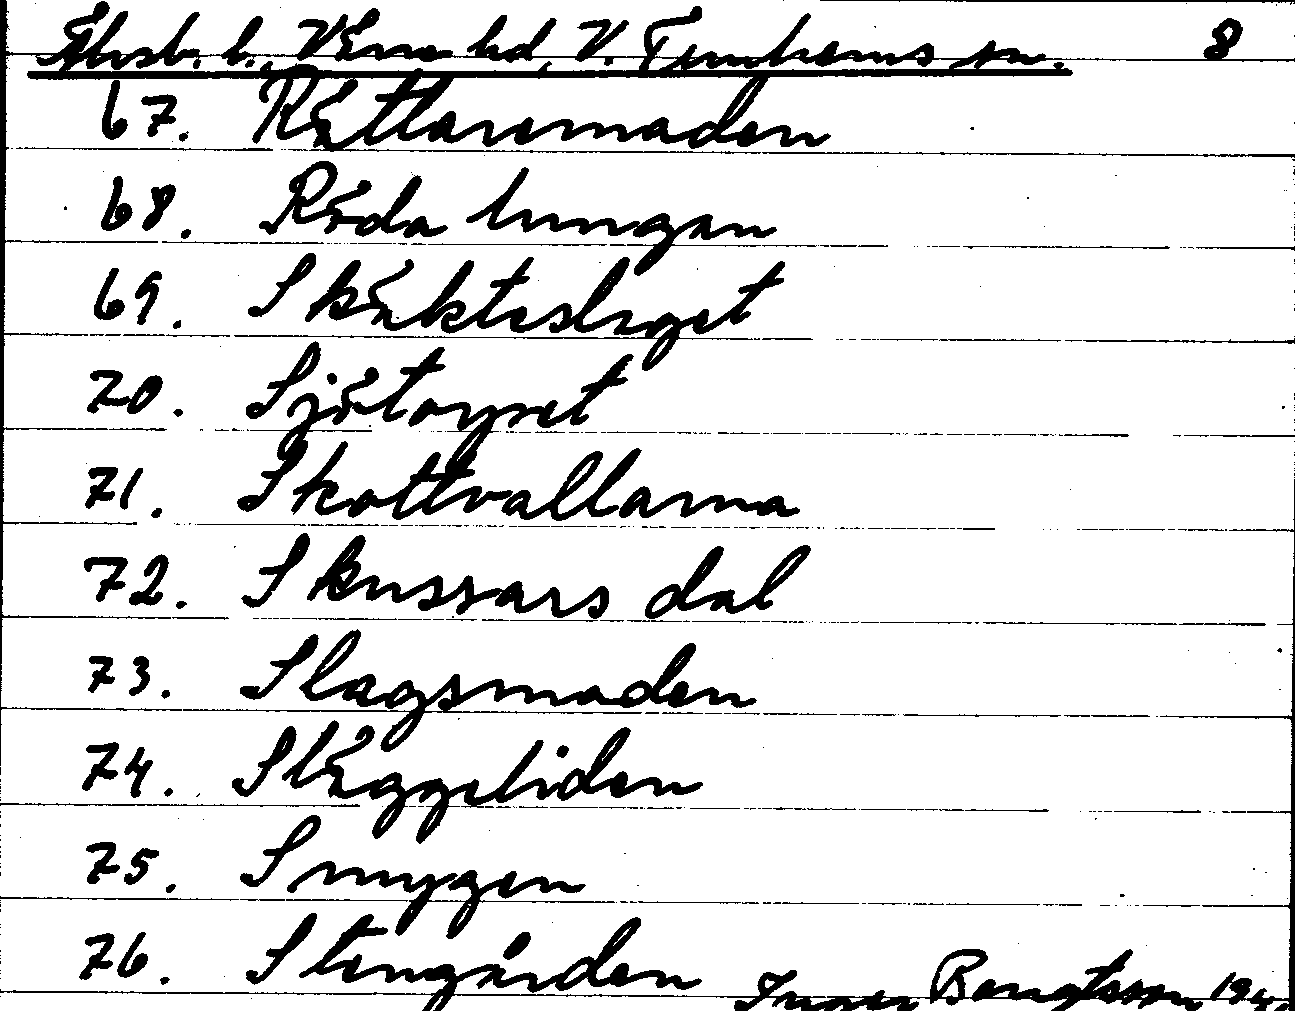 Älvsb. l., Väne hd, V. Tunhems sn. 8
67. Rättaremaden
68. Röda lungan
69. Skäkteslaget
70. Sjötorpet
71. Skottvallarna
72. Skussars dal
73. Slagsmaden
74. Släggeliden
75. Smygen
76. Stengården
Bengtsson